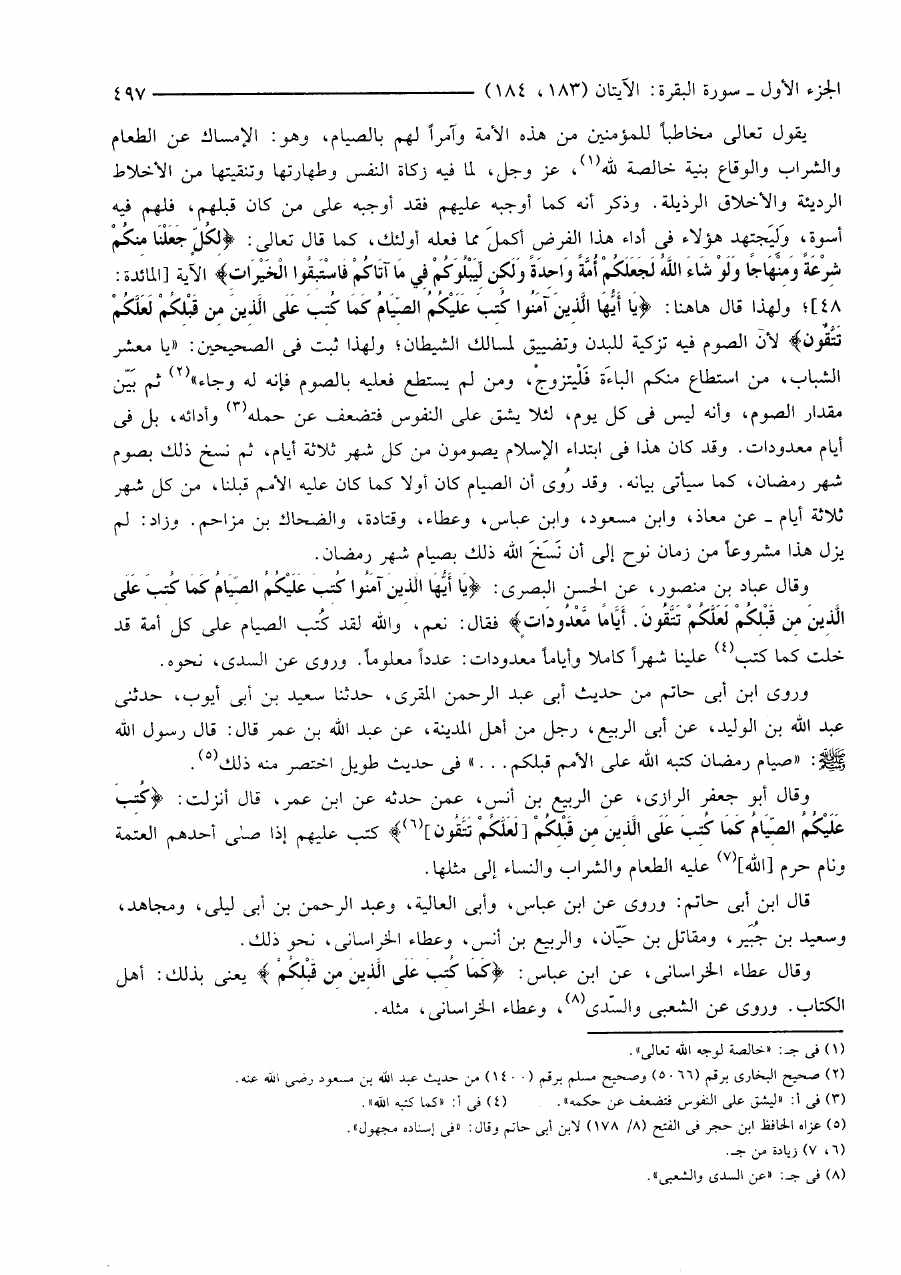 الجزء الأول ـ سورة البقرة: الآيتان (١٨٣، ١٨٤) ٤٩٧
يقول تعالى مخاطباً للمؤمنين من هذه الأمة وآمراً لهم بالصيام، وهو: الإمساك عن الطعام
والشراب والوقاع بنية خالصة لله(١)، عز وجل، لما فيه زكاة النفس وطهارتها وتنقيتها من الأخلاط
الرديئة والأخلاق الرذيلة. وذكر أنه كما أوجبه عليهم فقد أوجبه على من كان قبلهم، فلهم فيه
أسوة، وَليَجتهد هؤلاء فى أداء هذا الفرض أكملَ مما فعله أولئك، كما قال تعالى: ﴿لِكُلٍّ جَعَلْنَا مِنكُمْ
شِرْعَةً وَمِنْهَاجًا وَلَوْ شَاءَ اللَّهُ لَجَعَلَكُمْ أُمَّةً وَاحِدَةً وَلَكِن لِّيَبْلُوَكُمْ فِي مَا آتَاكُمْ فَاسْتَبِقُوا الْخَيْرَاتِ﴾ الآية [المائدة:
٤٨]؛ ولهذا قال هاهنا: ﴿يَا أَيُّهَا الَّذِينَ آمَنُوا كُتِبَ عَلَيْكُمُ الصِّيَامُ كَمَا كُتِبَ عَلَى الَّذِينَ مِن قَبْلِكُمْ لَعَلَّكُمْ
تَتَّقُونَ﴾ لأن الصوم فيه تزكية للبدن وتضييق لمسالك الشيطان؛ ولهذا ثبت فى الصحيحين: «يا معشر
الشباب، من استطاع منكم الباءَة فَلْيتزوج، ومن لم يستطع فعليه بالصوم فإنه له وجاء»(٢) ثم بَيَّن
مقدار الصوم، وأنه ليس فى كل يوم، لئلا يشق على النفوس فتضعف عن حمله(٣) وأدائه، بل فى
أيام معدودات. وقد كان هذا فى ابتداء الإسلام يصومون من كل شهر ثلاثة أيام، ثم نسخ ذلك بصوم
شهر رمضان، كما سيأتى بيانه. وقد رُوى أن الصيام كان أولا كما كان عليه الأمم قبلنا، من كل شهر
ثلاثة أيام ـ عن معاذ، وابن مسعود، وابن عباس، وعطاء، وقتادة، والضحاك بن مزاحم. وزاد: لم
يزل هذا مشروعاً من زمان نوح إلى أن نَسَخَ الله ذلك بصيام شهر رمضان.
وقال عباد بن منصور، عن الحسن البصرى: ﴿يَا أَيُّهَا الَّذِينَ آمَنُوا كُتِبَ عَلَيْكُمُ الصِّيَامُ كَمَا كُتِبَ عَلَى
الَّذِينَ مِن قَبْلِكُمْ لَعَلَّكُمْ تَتَّقُونَ. أَيَّامًا مَّعْدُودَاتٍ﴾ فقال: نعم، والله لقد كُتب الصيام على كل أمة قد
خلت كما كتب(٤) علينا شهراً كاملا وأياماً معدودات: عدداً معلوماً. وروى عن السدى، نحوه.
وروى ابن أبى حاتم من حديث أبى عبد الرحمن المقرى، حدثنا سعيد بن أبى أيوب، حدثنى
عبد الله بن الوليد، عن أبى الربيع، رجل من أهل المدينة، عن عبد الله بن عمر قال: قال رسول الله
ﷺ: «صيام رمضان كتبه الله على الأمم قبلكم...» فى حديث طويل اختصر منه ذلك(٥).
وقال أبو جعفر الرازى، عن الربيع بن أنس، عمن حدثه عن ابن عمر، قال أنزلت: ﴿كُتِبَ
عَلَيْكُمُ الصِّيَامُ كَمَا كُتِبَ عَلَى الَّذِينَ مِن قَبْلِكُمْ [لَعَلَّكُمْ تَتَّقُونَ](٦)﴾ كتب عليهم إذا صلى أحدهم العتمة
ونام حرم [الله](٧) عليه الطعام والشراب والنساء إلى مثلها.
قال ابن أبى حاتم: وروى عن ابن عباس، وأبى العالية، وعبد الرحمن بن أبى ليلى، ومجاهد،
وسعيد بن جُبَير، ومقاتل بن حَيَّان، والربيع بن أنس، وعطاء الخراسانى، نحو ذلك.
وقال عطاء الخراسانى، عن ابن عباس: ﴿كَمَا كُتِبَ عَلَى الَّذِينَ مِن قَبْلِكُمْ﴾ يعنى بذلك: أهل
الكتاب. وروى عن الشعبى والسّدى(٨)، وعطاء الخراسانى، مثله.
(١) فى جـ: «خالصة لوجه الله تعالى».
(٢) صحيح البخارى برقم (٥٠٦٦) وصحيح مسلم برقم (١٤٠٠) من حديث عبد الله بن مسعود رضى الله عنه.
(٣) فى أ: «ليشق على النفوس فتضعف عن حكمه». (٤) فى أ: «كما كتبه الله».
(٥) عزاه الحافظ ابن حجر فى الفتح (٨/ ١٧٨) لابن أبى حاتم وقال: «فى إسناده مجهول».
(٦، ٧) زيادة من جـ.
(٨) فى جـ: «عن السدى والشعبى».